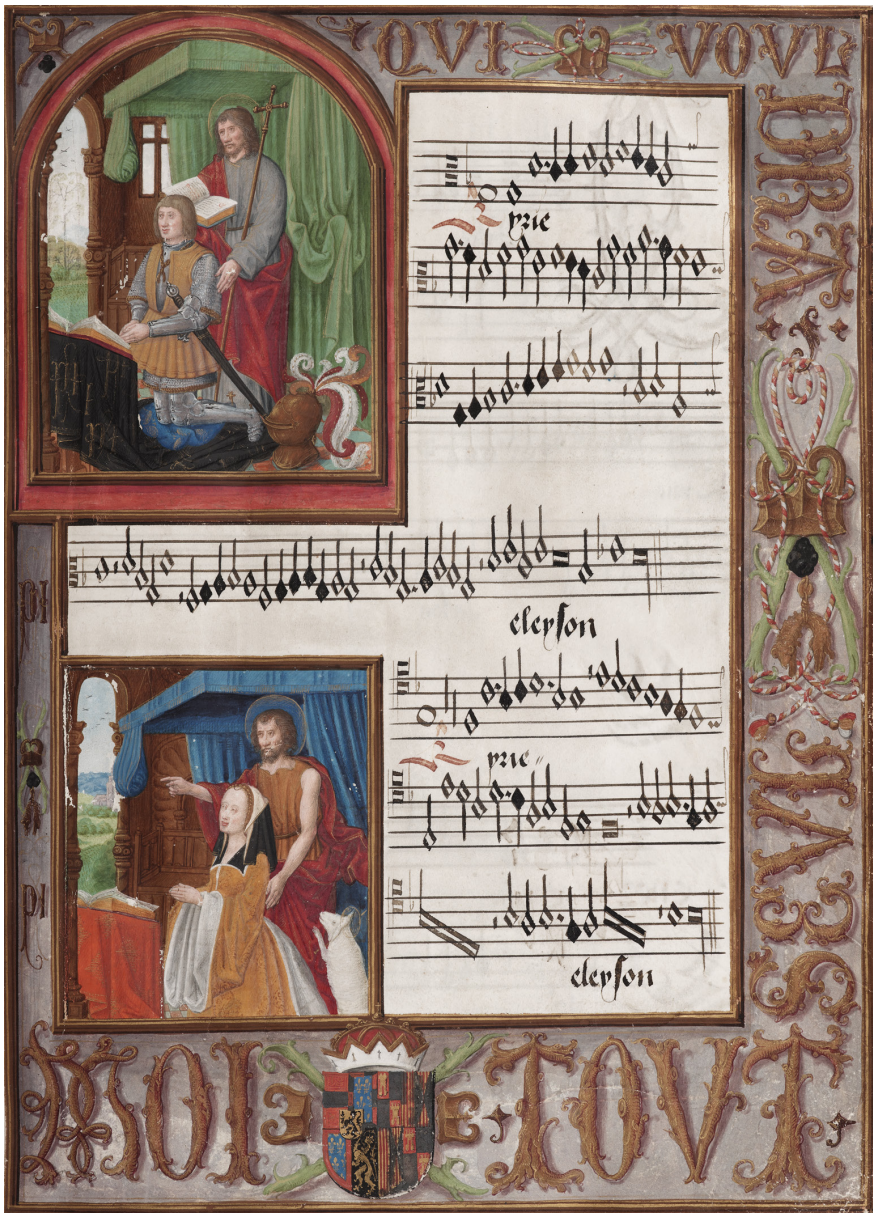 QVI VOVL
DRA
yrie
eleyson
yrie
eleyson
MOI TOVT
SEVL